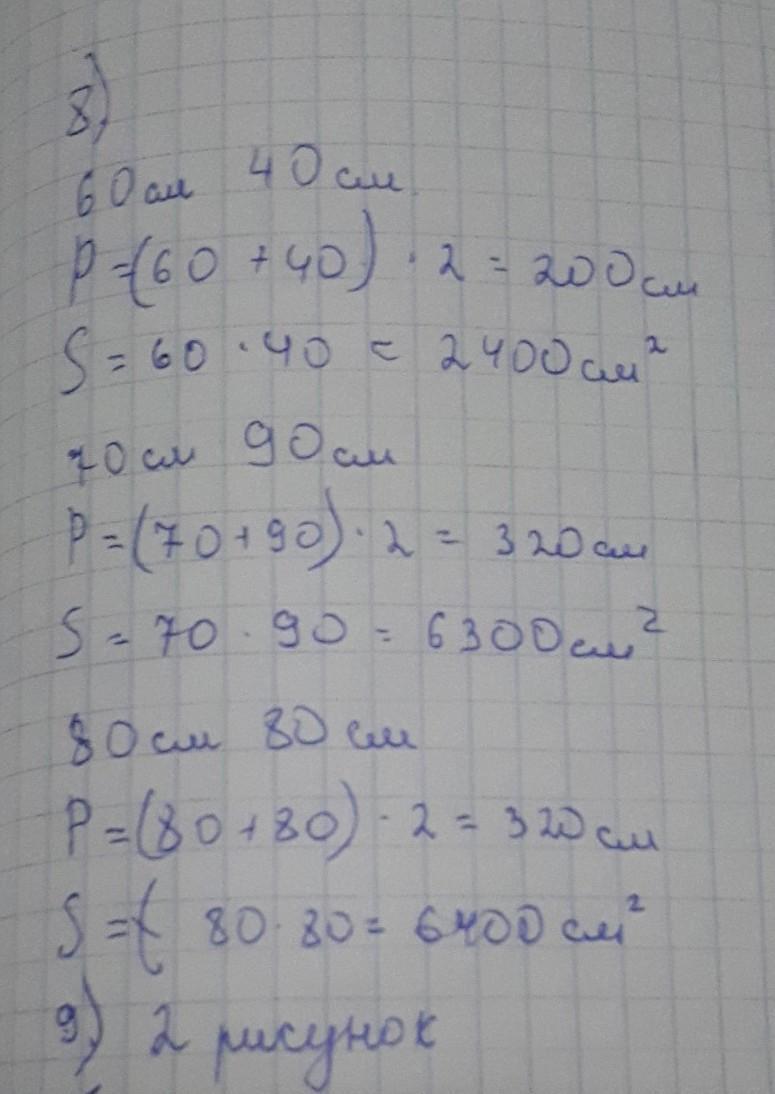 8)
60см 40см
P=(60+40)·2=200см
S=60·40=2400см²
70см 90см
P=(70+90)·2=320см
S=70·90=6300см²
80см 80см
P=(80+80)·2=320см
S=( 80·80=6400см²
9) 2 рисунок